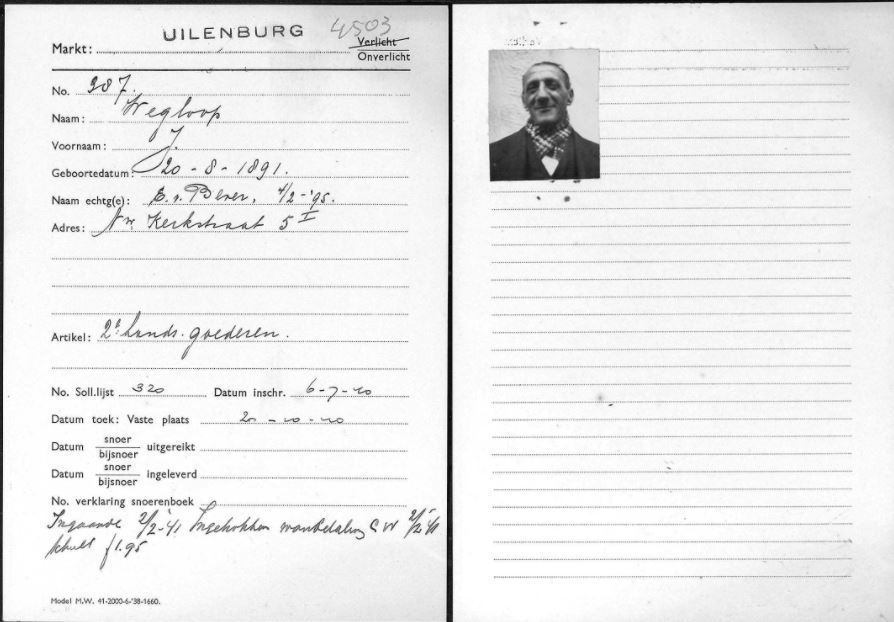 UILENBURG
4503
Markt:
Verlicht
Onverlicht
No. 387.
Naam: Wegloop
Voornaam: J.
Geboortedatum: 20-8-1891.
Naam echtg(e): E. v. Bever, 4/2-'95.
Adres: Nw. Kerkstraat 5 I
Artikel: 2e hands. goederen.
No. Soll.lijst 320 Datum inschr. 6-7-40
Datum toek: Vaste plaats 20-10-40
Datum snoer / bijsnoer uitgereikt
Datum snoer / bijsnoer ingeleverd
No. verklaring snoerenboek
Ingaande 2/2-'41 Ingetrokken wanbetaling
schuld f 1.95
Model M.W. 41-2000-6-'38-1660.